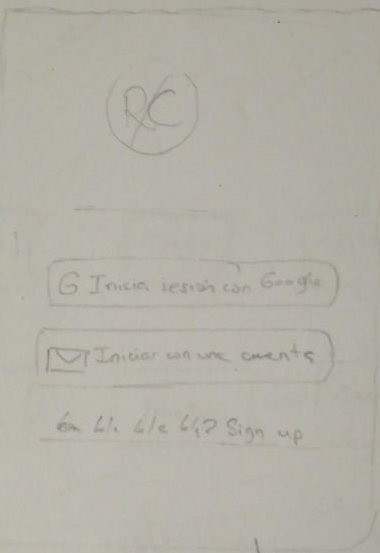 RC
G Inicia sesión con Google
Iniciar con una cuenta
Sign up